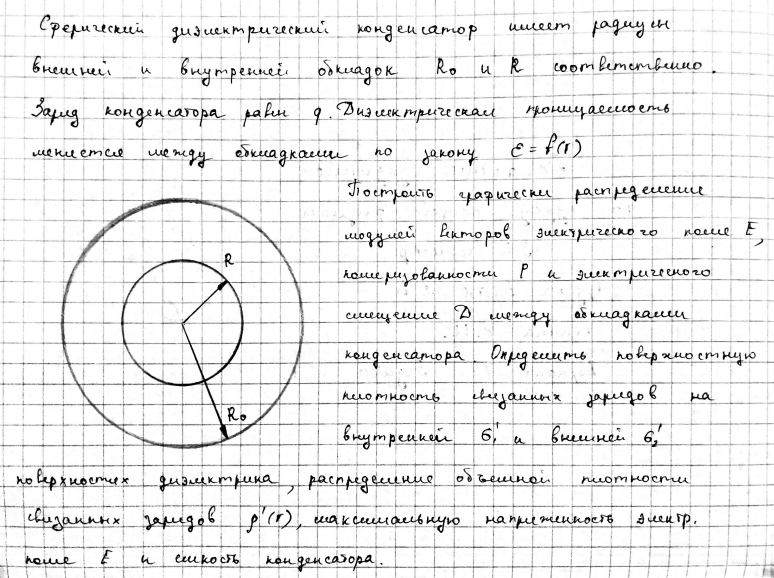 Сферический диэлектрический конденсатор имеет радиусы
внешней и внутренней обкладок R₀ и R соответственно.
Заряд конденсатора равен q. Диэлектрическая проницаемость
меняется между обкладками по закону ε = f(r)
Построить графически распределение
модулей векторов электрического поля E,
поляризованности P и электрического
смещения D между обкладками
конденсатора. Определить поверхностную
плотность связанных зарядов на
внутренней σ₁' и внешней σ₂'
поверхностях диэлектрика, распределение объемной плотности
связанных зарядов ρ'(r), максимальную напряженность электр.
поля E и ёмкость конденсатора.
R
R₀